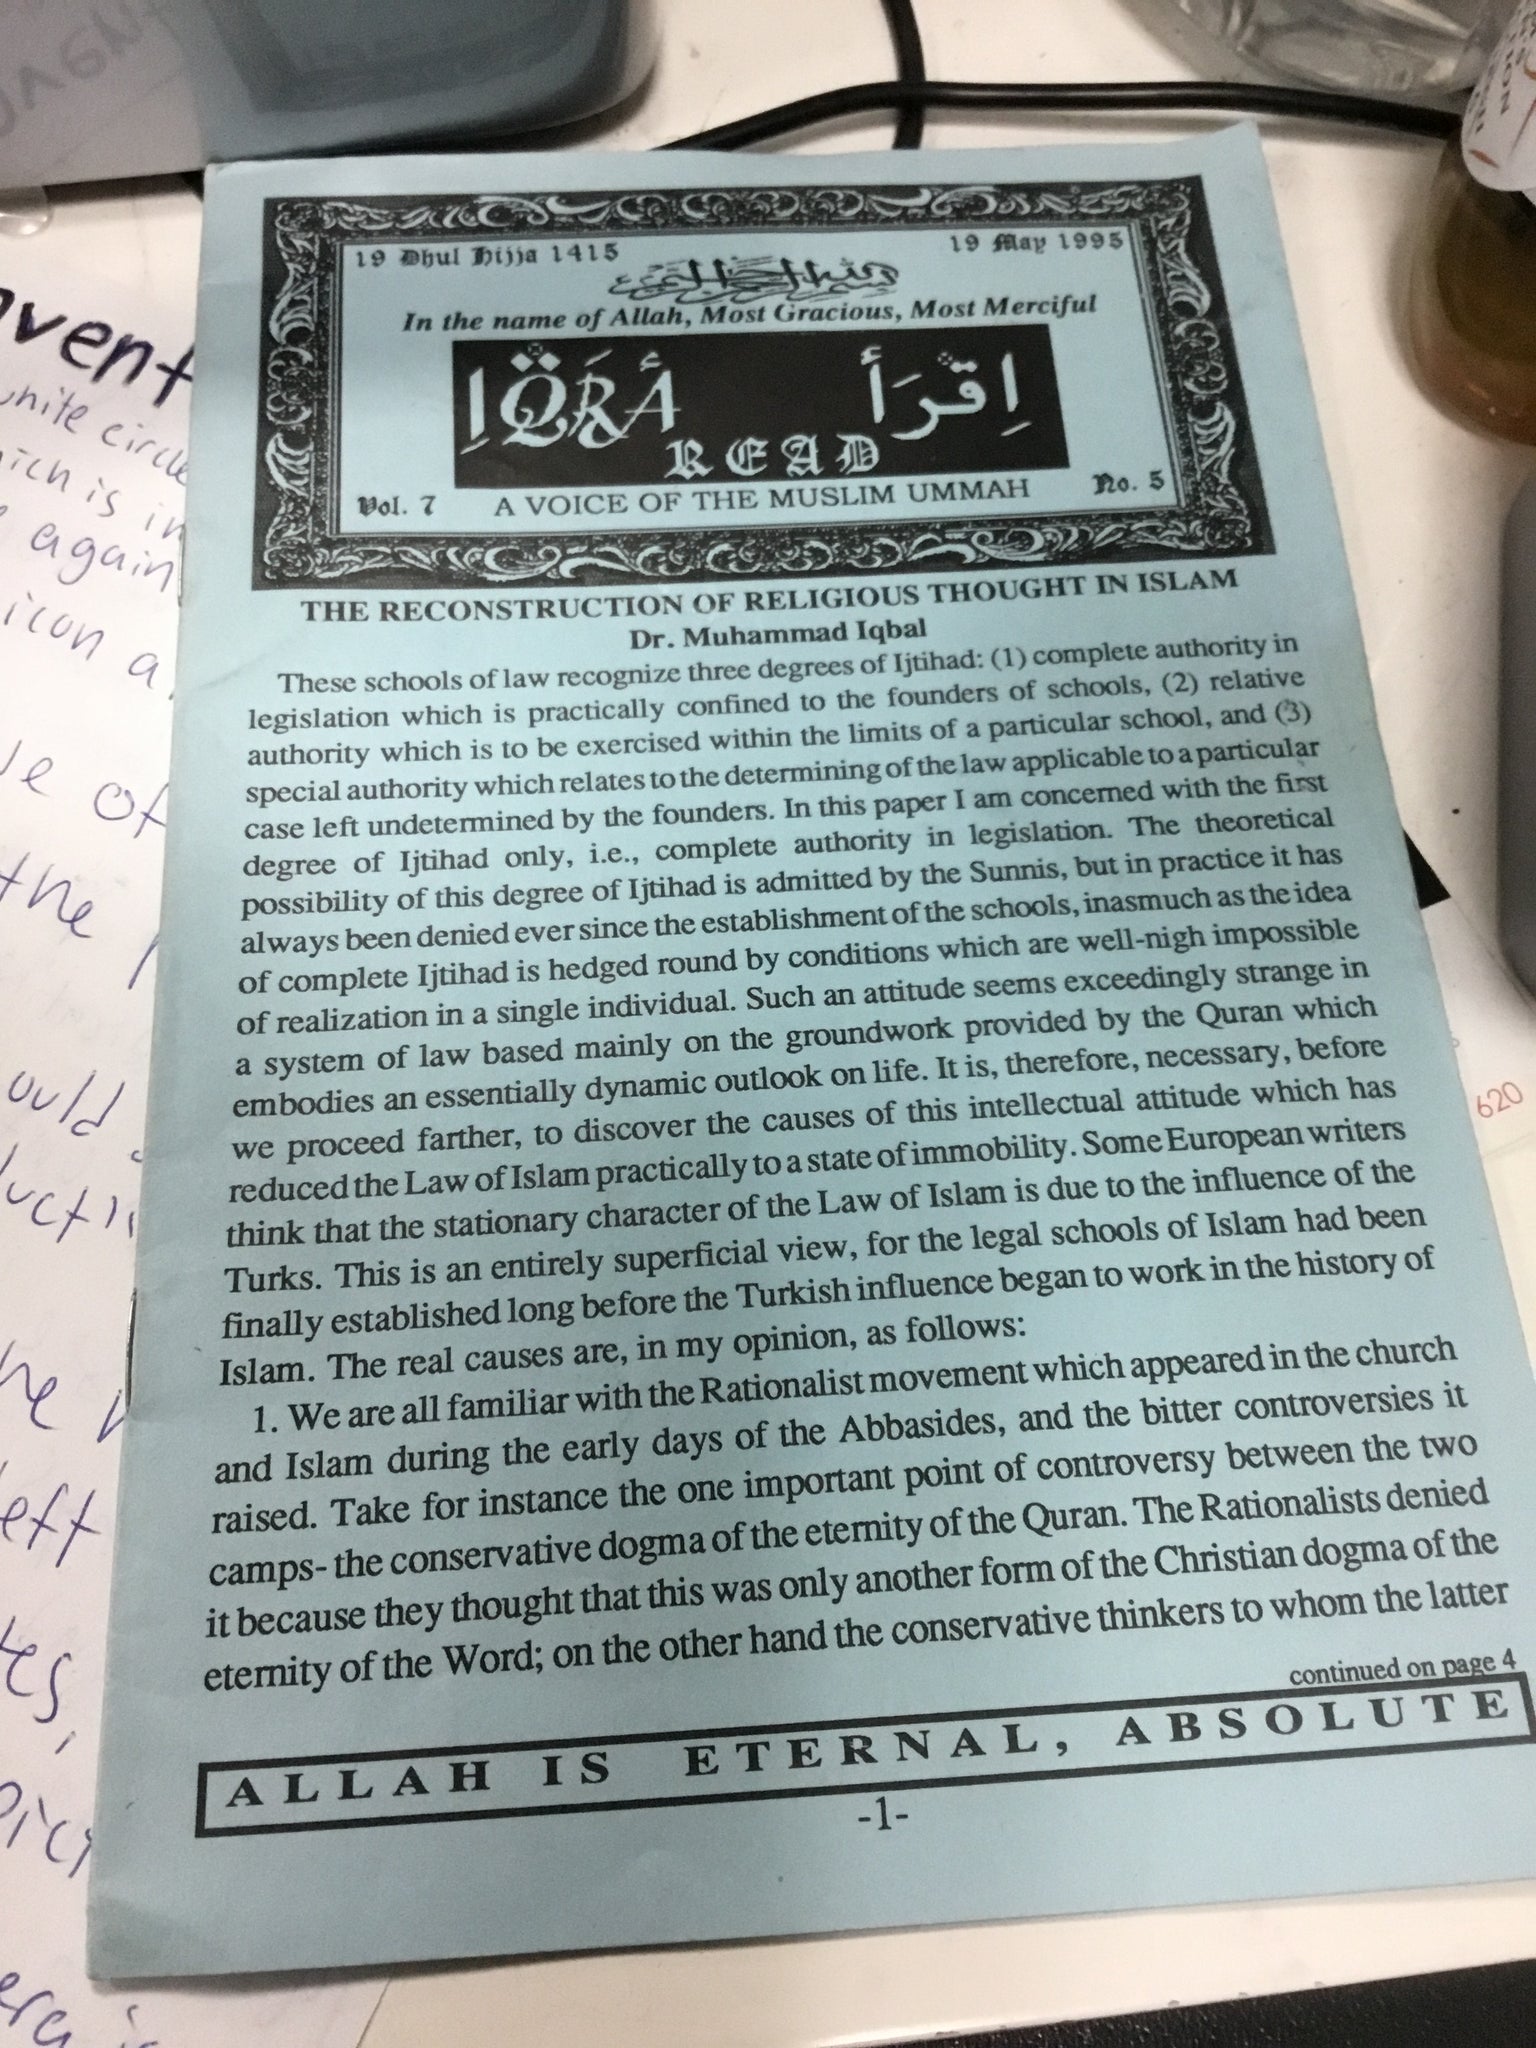 19 Dhul Hijja 1415
19 May 1995
In the name of Allah, Most Gracious, Most Merciful
IQRA
اِقْرَأ
READ
Vol. 7
A VOICE OF THE MUSLIM UMMAH
No. 5
THE RECONSTRUCTION OF RELIGIOUS THOUGHT IN ISLAM
Dr. Muhammad Iqbal
These schools of law recognize three degrees of Ijtihad: (1) complete authority in
legislation which is practically confined to the founders of schools, (2) relative
authority which is to be exercised within the limits of a particular school, and (3)
special authority which relates to the determining of the law applicable to a particular
case left undetermined by the founders. In this paper I am concerned with the first
degree of Ijtihad only, i.e., complete authority in legislation. The theoretical
possibility of this degree of Ijtihad is admitted by the Sunnis, but in practice it has
always been denied ever since the establishment of the schools, inasmuch as the idea
of complete Ijtihad is hedged round by conditions which are well-nigh impossible
of realization in a single individual. Such an attitude seems exceedingly strange in
a system of law based mainly on the groundwork provided by the Quran which
embodies an essentially dynamic outlook on life. It is, therefore, necessary, before
we proceed farther, to discover the causes of this intellectual attitude which has
reduced the Law of Islam practically to a state of immobility. Some European writers
think that the stationary character of the Law of Islam is due to the influence of the
Turks. This is an entirely superficial view, for the legal schools of Islam had been
finally established long before the Turkish influence began to work in the history of
Islam. The real causes are, in my opinion, as follows:
1. We are all familiar with the Rationalist movement which appeared in the church
and Islam during the early days of the Abbasides, and the bitter controversies it
raised. Take for instance the one important point of controversy between the two
camps- the conservative dogma of the eternity of the Quran. The Rationalists denied
it because they thought that this was only another form of the Christian dogma of the
eternity of the Word; on the other hand the conservative thinkers to whom the latter
continued on page 4
ALLAH IS ETERNAL, ABSOLUTE
-1-
circle
is in
again
icon a
of
the
620